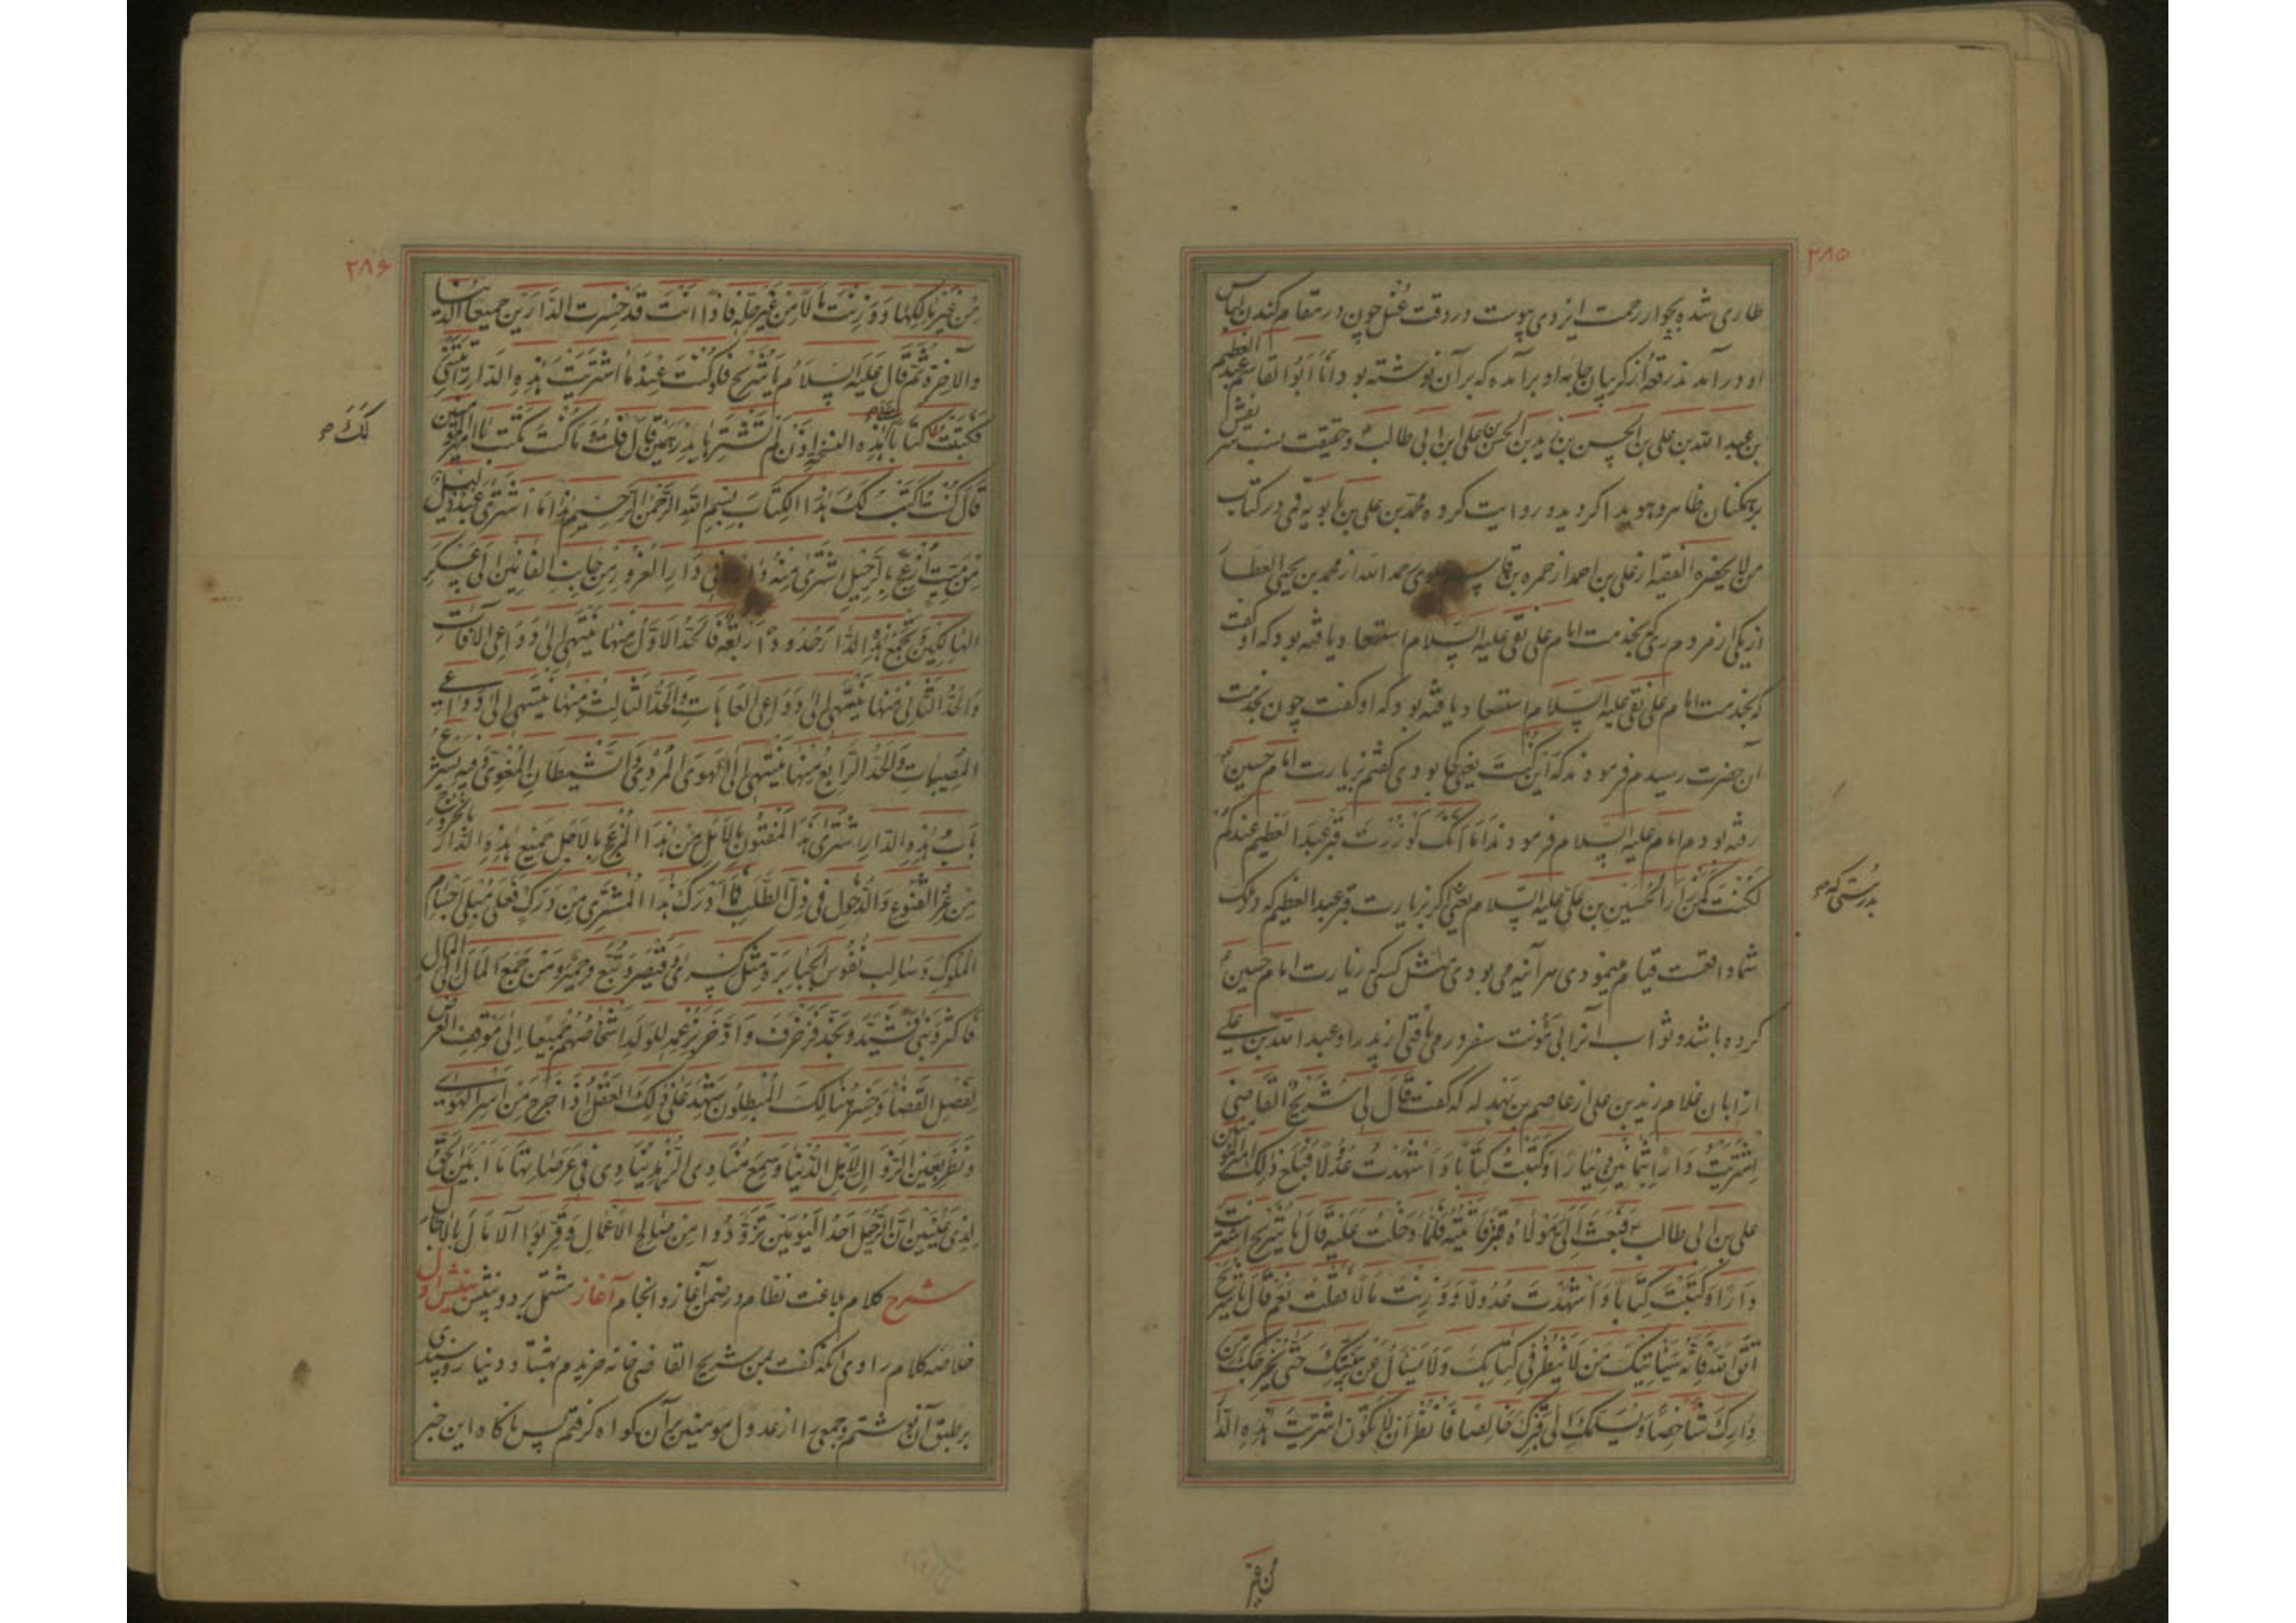 ۲۸۵
طاری شده بجوار رحمت ایزدی پیوست در وقت غسل چون در مقام کندن لباس
او در آمدند رقعهٔ از گریبان جامه او برآمده که بر آن نوشته بود انا ابوالقاسم عبدالعظیم
بن عبدالله بن علی بن الحسن بن زید بن الحسن بن علی ابن ابی طالب و حقیقت نسب
بر همکنان ظاهر و هویدا کردید و روایت کرده محمد بن علی بن بابویه قمی در کتاب
من لا یحضره الفقیه از علی بن احمد از حمزه بن قاسم علوی رحمه الله از محمد بن یحیی العطار
از یکی از مردم ری که بخدمت امام علی نقی علیه السلام استسعاد یافته بود که او گفت
که بخدمت امام علی نقی علیه السلام استسعاد یافته بود که او گفت چون بخدمت
آن حضرت رسیدم فرمودند که این کنت یعنی کجا بودی گفتم بزیارت امام حسین
رفته بودم امام علیه السلام فرمودند اما انک لو زرت قبر عبدالعظیم عندکم
لکنت کمن زار الحسین بن علی علیه السلام یعنی اگر بزیارت قبر عبدالعظیم که نزد
بدرستی که
شما واقعست قیام مینمودی هر آئینه می بودی مثل کسی که زیارت امام حسین
کرده باشد و ثواب آنرا بی مؤنت سفر در می یافتی زید را و عبدالله بن علی
از ابان غلام زید بن علی از عاصم بن بهدله که گفت قال لی شریح القاضی
اشتریت دارا بثمانین دینارا و کتبت کتابا و اشهدت عدولا فبلغ ذلک امیرالمؤمنین
علی بن ابی طالب فبعث الی مولاه قنبر فاتیته فلما دخلت علیه قال یا شریح اشتریت
دارا و کتبت کتابا و اشهدت عدولا و وزنت مالا فقلت نعم قال یا شریح
اتق الله فانه سیاتیک من لا ینظر فی کتابک و لا یسأل عن بینتک حتی یخرجک من
دارک شاخصا و یسلمک الی قبرک خالصا فانظر ان لا تکون اشتریت هذه الدار
من غیر
۲۸۶
من غیر مالکها و وزنت مالا من غیر حله فاذا انت قد خسرت الدارین جمیعا الدنیا
والآخرة ثم قال علیه السلام یا شریح فلو کنت عند ما اشتریت هذه الدار اتیتنی
لک
فکتبت کتابا علی هذه النسخة اذن لم تشترها بدرهمین قال قلت و ما کنت تکتب یا امیرالمؤمنین
قال کنت اکتب لک هذا الکتاب بسم الله الرحمن الرحیم هذا ما اشتری عبد ذلیل
من میت ازعج بالرحیل اشتری منه دارا فی دار الغرور من جانب الفانین الی عسکر
الهالکین و تجمع هذه الدار حدود اربعة فالحد الاول منها ینتهی الی دواعی الآفات
والحد الثانی منها ینتهی الی دواعی العاهات والحد الثالث منها ینتهی الی دواعی
المصیبات والحد الرابع منها ینتهی الی الهوی المردی والشیطان المغوی و فیه یشرع
باب هذه الدار اشتری هذا المفتون بالامل من هذا المزعج بالاجل جمیع هذه الدار بالخروج
من عز القنوع والدخول فی ذل الطلب فما ادرک هذا المشتری من درک فعلی مبلی اجسام
الملوک و سالب نفوس الجبابرة مثل کسری و قیصر و تبع و حمیر و من جمع المال الی المال
فاکثر و بنی فشید و نجد فزخرف و ادخر بزعمه للولد اشخاصهم جمیعا الی موقف العرض
لفصل القضاء و خسر هنالک المبطلون یشهد علی ذلک العقل اذا خرج من اسر الهوی
و نظر بعین الزوال لاهل الدنیا و سمع منادی الزهد ینادی فی عرصاتها ما ابین الحق
لذی عینین ان الرحیل احد الیومین تزودوا من صالح الاعمال و قربوا الآمال بالآجال
شرح کلام بلاغت نظام در ضمن آغاز و انجام آغاز مشتمل بر دو بینش بینش اول
خلاصه کلام راوی آنکه گفت بمن شریح القاضی خانه خریدم بهشتاد دینار و سندی
بر طبق آن نوشتم و جمعی را از عدول مومنین بر آن گواه گرفتم پس ناگاه این خبر